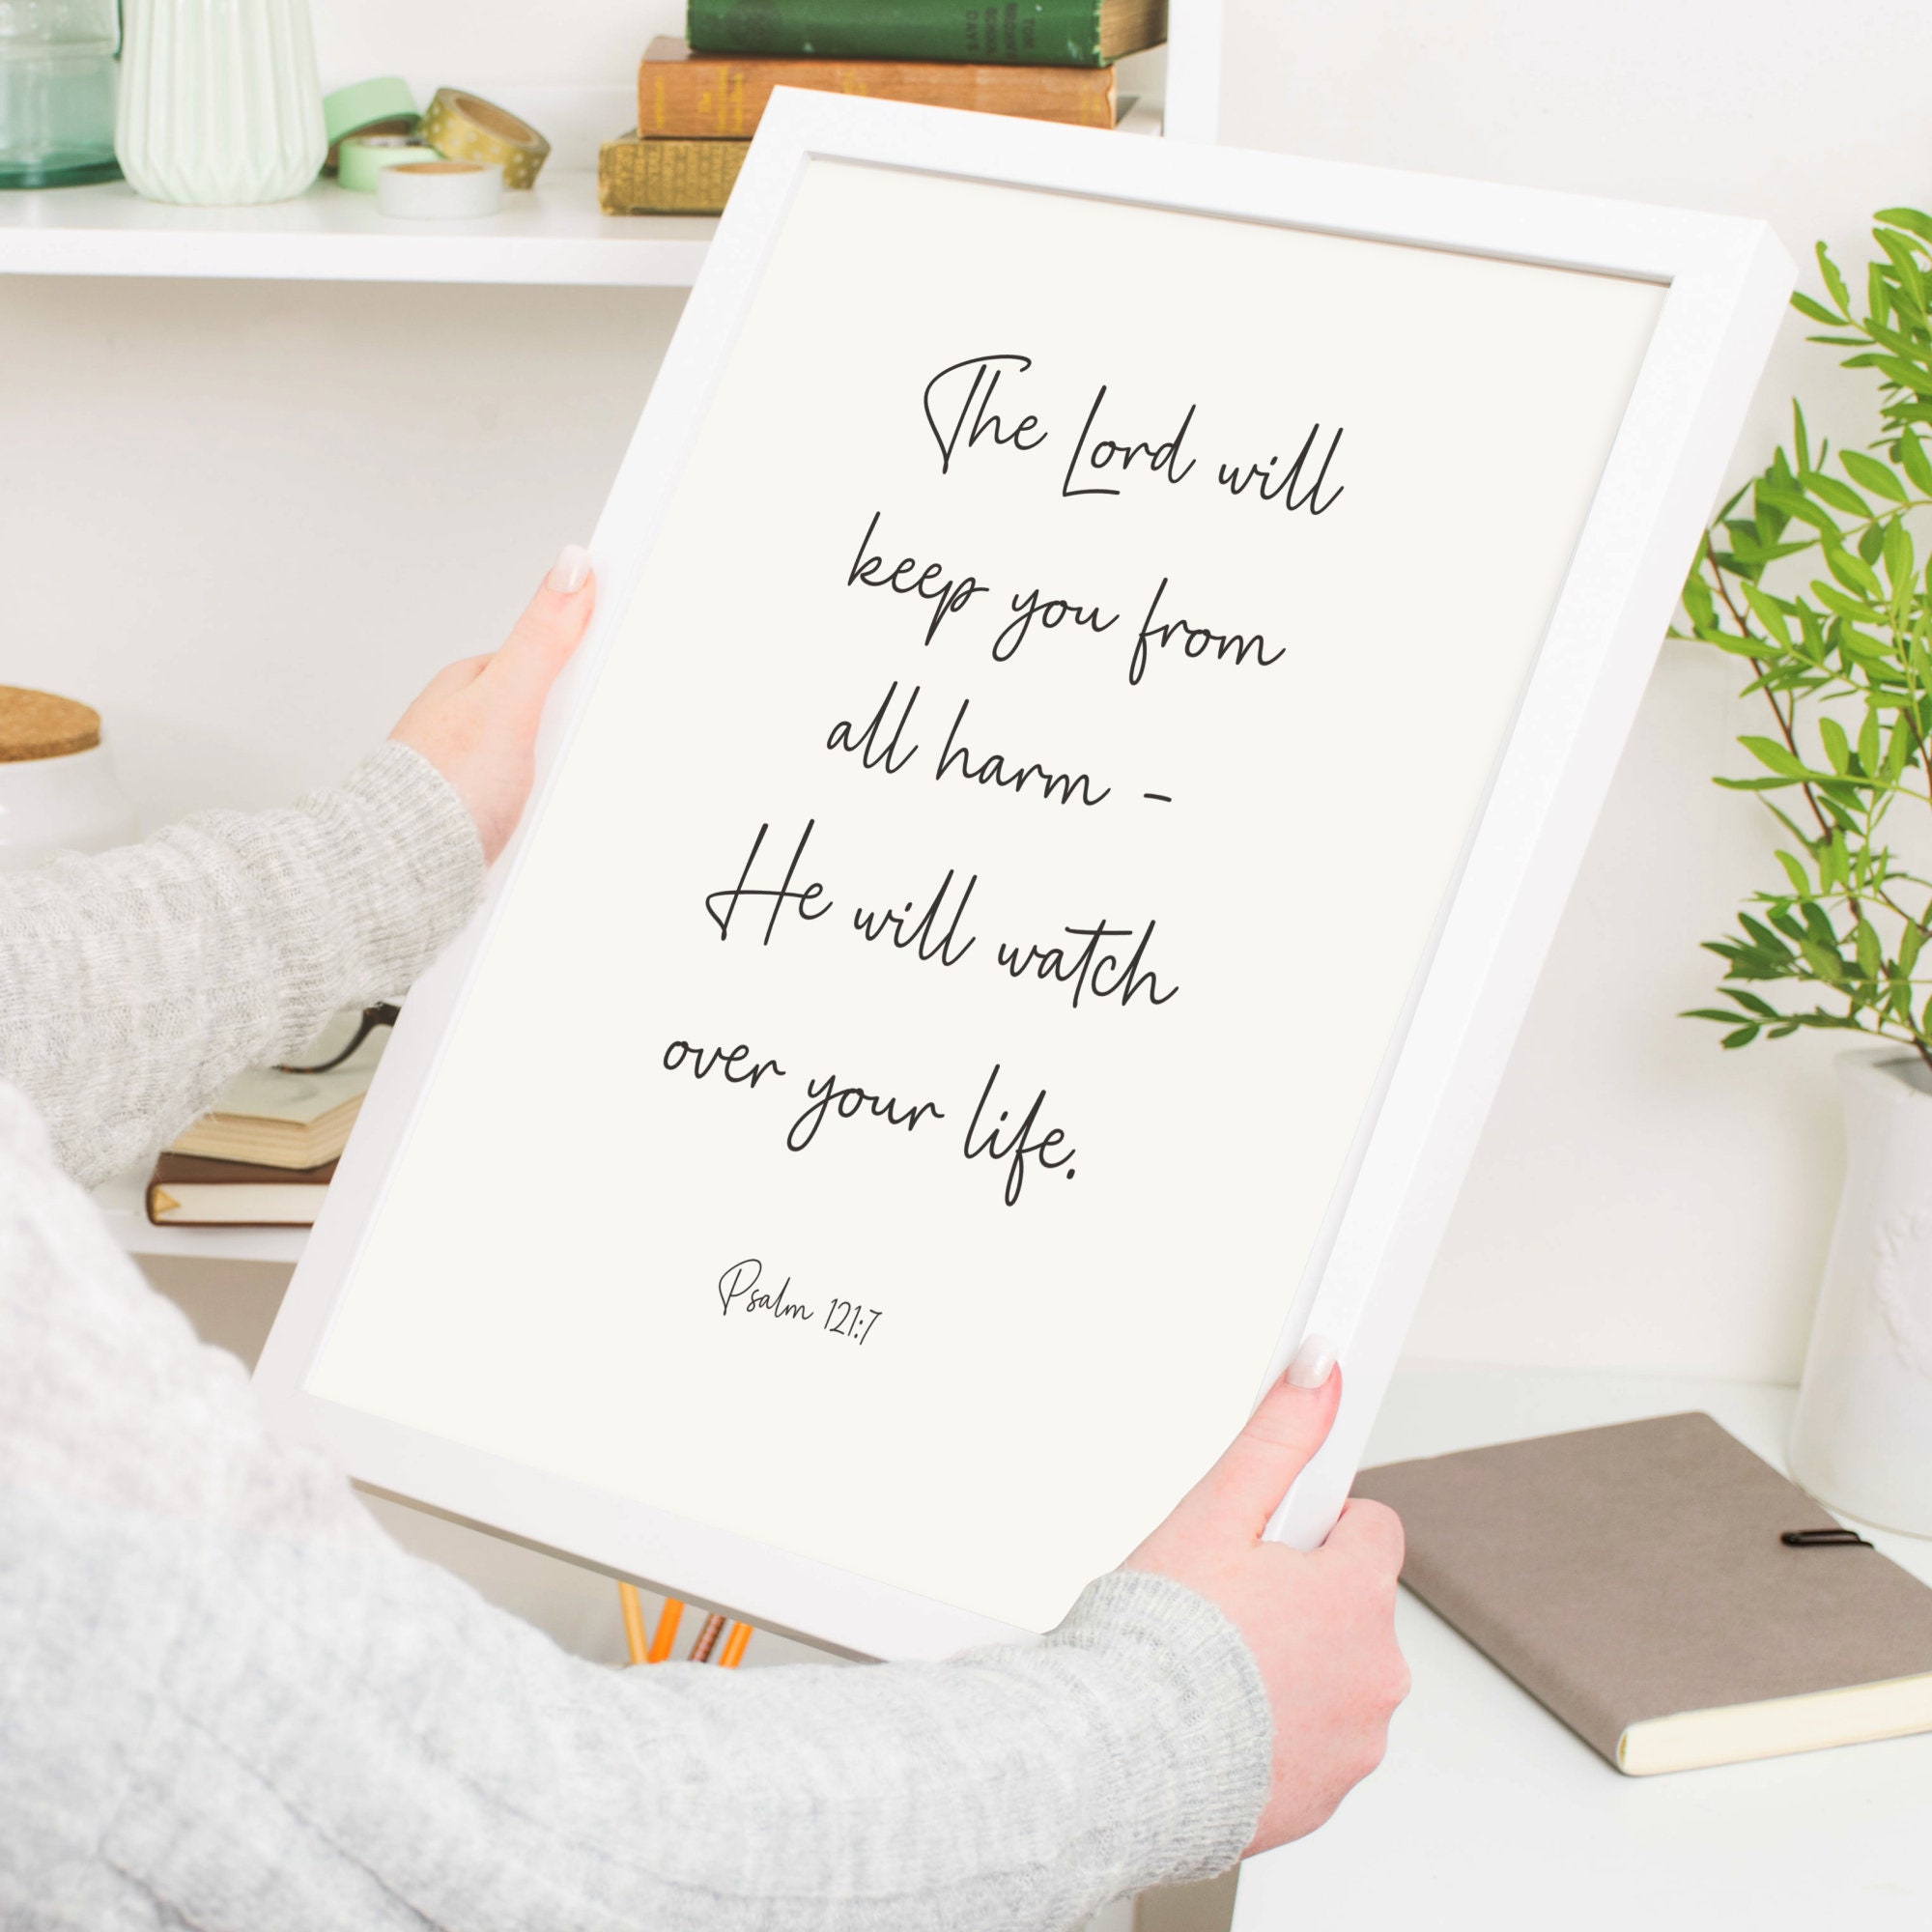 The Lord will
keep you from
all harm -
He will watch
over your life.
Psalm 121:7